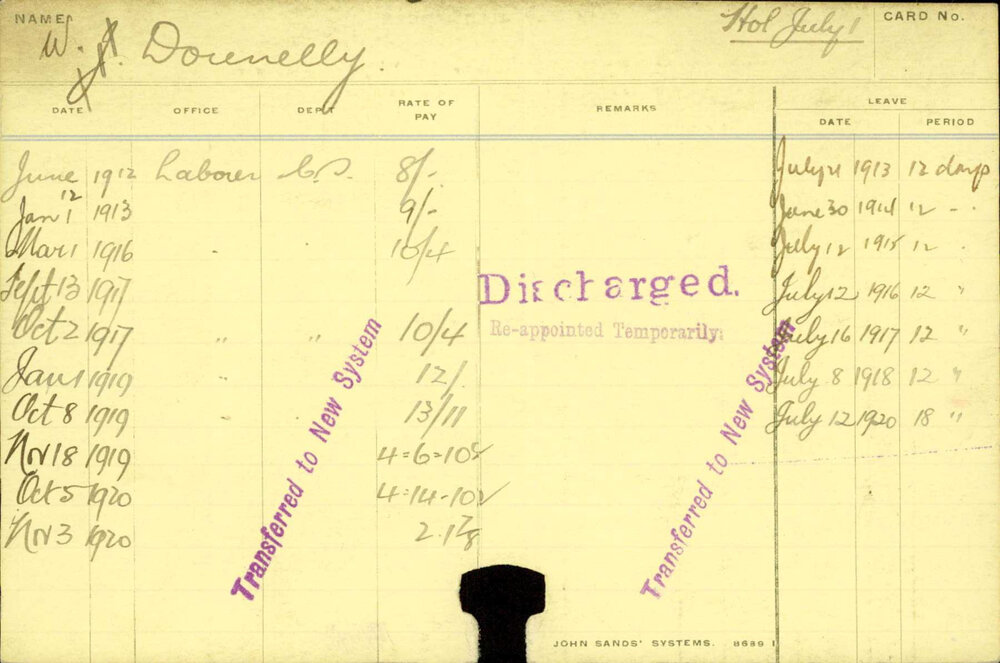 NAME W. J. Donnelly Hol July 1 CARD No.
DATE OFFICE DEPT RATE OF PAY REMARKS LEAVE
DATE PERIOD
June 12 1912 Laborer 8/- July 21 1913 12 days
Jan 1 1913 9/- June 30 1914 12 - -
Mar 1 1916 " 10/4 July 12 1915 12 "
Sept 13 1917 Discharged. July 12 1916 12 "
Oct 2 1917 " " 10/4 Re-appointed Temporarily. July 16 1917 12 "
Jan 1 1919 " 12/ July 8 1918 12 "
Oct 8 1919 " 13/11 July 12 1920 18 "
Nov 18 1919 4=6=10
Oct 5 1920 4=14-10
Nov 3 1920 2.1 7/8
Transferred to New System
Transferred to New System
JOHN SANDS' SYSTEMS. 8689